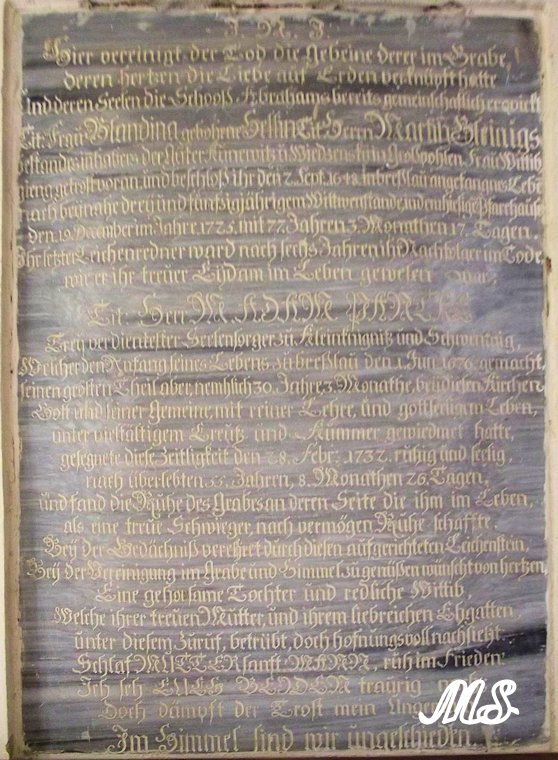 J. N. J.
Hier vereinigt der Tod die Gebeine derer im Grabe,
deren Hertzen die Liebe auf Erden verknüpft hatte
und deren Seelen die Schooß Abrahams bereits gemeinschaftlich erquickt
Tit. Frau Blandina gebohrne Tit. Herrn Martin Gleinigs
Bestandes inhabers der Güter zu in Großpohlen Frau Wittib
gieng getrost voran, und beschloß ihr den 2. Sept. 1648. in Breßlau angefangnes Leben
nach beynahe drey und fünfzigjährigem Wittwenstande, in dem hiesigen Pfarrhause
den 19. December im Jahre, 1725. mit 77. Jahren 3. Monathen 17. Tagen.
Ihr letzter Leichenredner ward nach sechs Jahren ihr Nachfolger im Tode
wie er ihr treuer Eydam im Leben gewesen war,
Tit. Herr M. ADAM
Treu verdientester Seelensorger zu Kleinkniegnitz und Schwentnig,
Welcher den Anfang seines Lebens zu Breßlau den 1. Jun. 1676. gemacht,
seinen grösten Theil aber, nemhlich 30. Jahre, 3. Monathe, bey diesen Kirchen
Gott und seiner Gemeine, mit reiner Lehre, und gottseeligem Leben,
unter vielfältigem Creutz und Kummer gewiedmet hatte,
gesegnete diese Zeitligkeit den 28. Febr. 1732. ruhig und seelig,
nach überlebten 55. Jahren, 8. Monathen 26. Tagen,
und fand die Ruhe des Grabes an deren Seite die ihm im Leben,
als eine treue Schwieger, nach vermögen Ruhe schaffte.
Bey der Gedächniß verehret durch diesen aufgerichteten Leichenstein,
Bey der Vereinigung im Grabe und Himmel zu genüßen wünscht von hertzen
Eine gehorsame Tochter und redliche Wittib,
Welche ihrer treuen Mutter, und ihrem liebreichen Ehgatten
unter diesem Zuruf, betrübt, doch hofnungsvoll nachsieht:
Schlaf MUTTER sanft MANN, ruh im Frieden:
Ich seh EUCH BEYDEN traurig nach
Doch dämpft der Trost mein
Im Himmel sind wir ungeschieden.
MS.